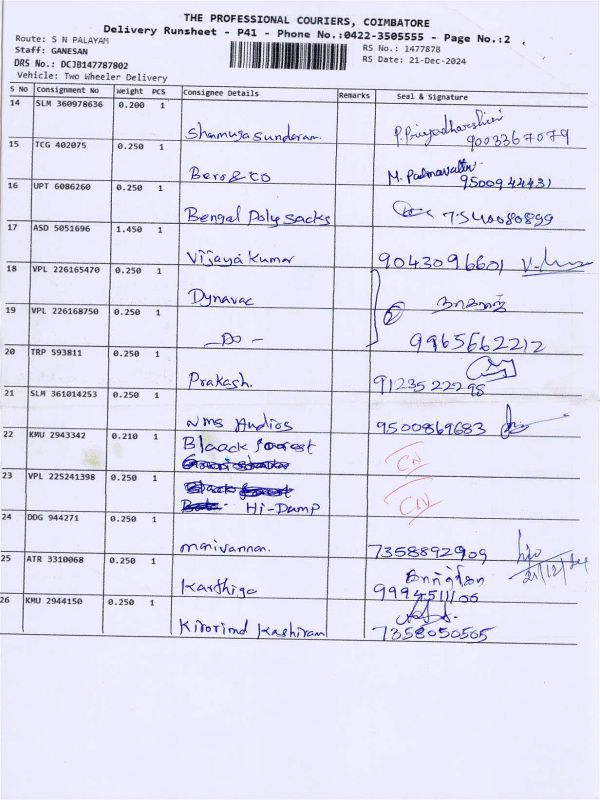 THE PROFESSIONAL COURIERS, COIMBATORE
Delivery Runsheet - P41 - Phone No.:0422-3505555 - Page No.:2
Route: S N PALAYAM
RS No.: 1477878
Staff: GANESAN
RS Date: 21-Dec-2024
DRS No.: DCJB147787802
Vehicle: Two Wheeler Delivery
S No Consignment No Weight PCS Consignee Details Remarks Seal & Signature
14 SLM 360978636 0.200 1
Shamuga sundaram P. Priyadharshini
9003367079
15 TCG 402075 0.250 1
Bero & co M. Padmavathi
9500944431
16 UPT 6086260 0.250 1
Bengal Poly sacks 7540080899
17 ASD 5051696 1.450 1
Vijaya kumar 9043096601
18 VPL 226165470 0.250 1
Dynavac
19 VPL 226168750 0.250 1
- Do - 9965662212
20 TRP 593811 0.250 1
Prakash. 9123522298
21 SLM 361014253 0.250 1
NMS Audios 9500869683
22 KMU 2943342 0.210 1
Blaack forest CN
23 VPL 225241398 0.250 1
Hi-Damp CN
24 DDG 944271 0.250 1
manivannan. 7358892909
21/12/24
25 ATR 3310068 0.250 1
Karthiga 9994511106
26 KMU 2944150 0.250 1
Kirorimd Kashiram 7358050505